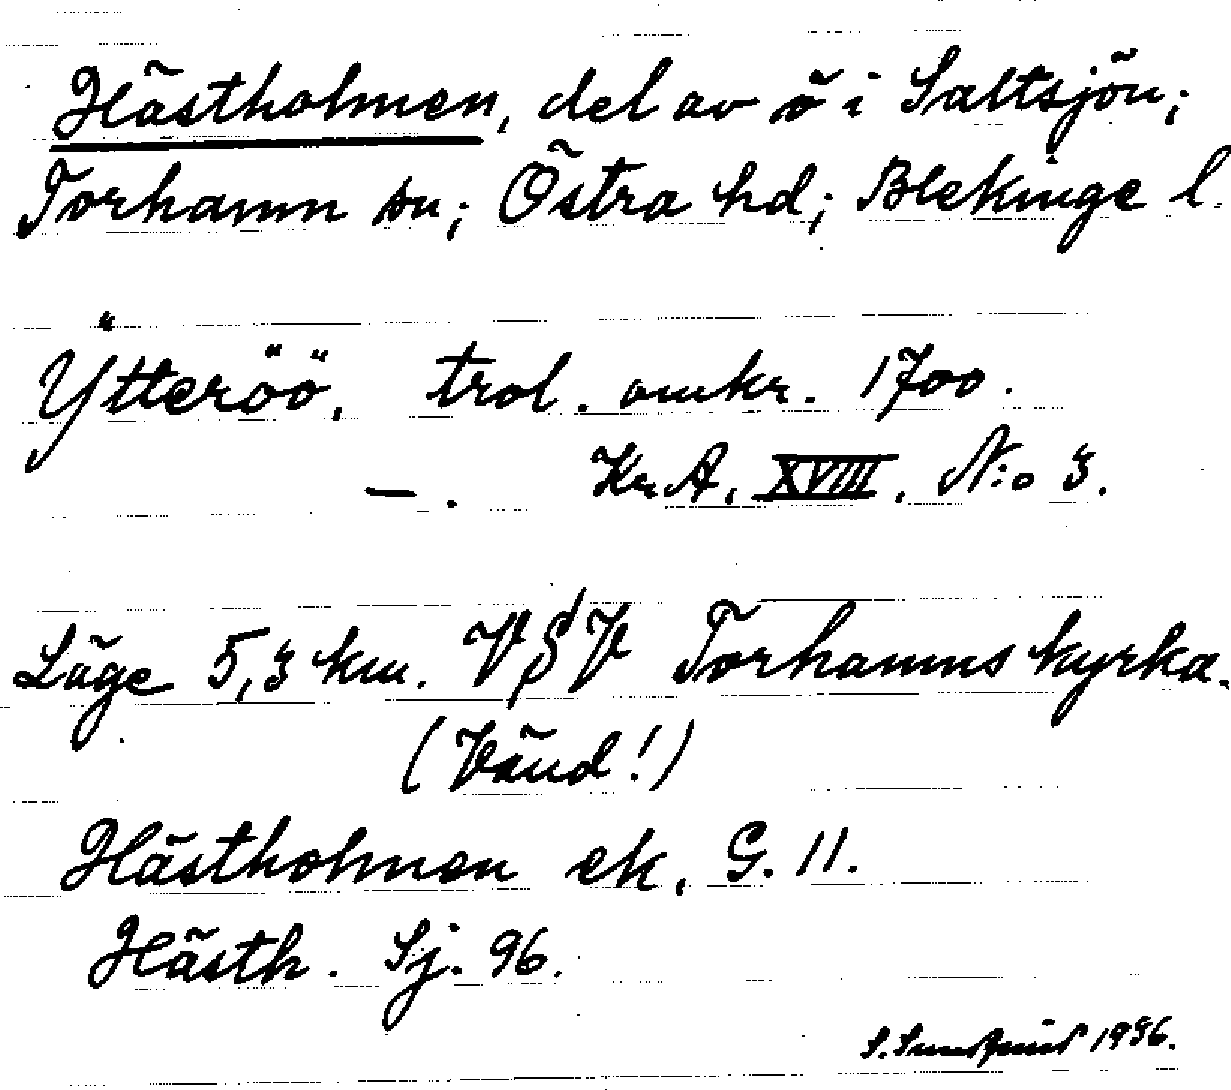 Hästholmen, del av ö i Saltsjön;
Torhamn sn; Östra hd; Blekinge l.
Ytteröö, trol. omkr. 1700.
— . Kr.A. XVIII. N:o 3.
Läge 5,3 km. V§V Torhamns kyrka.
(Vänd!)
Hästholmen ek. G. 11.
Hästh. Sj. 96.
S.